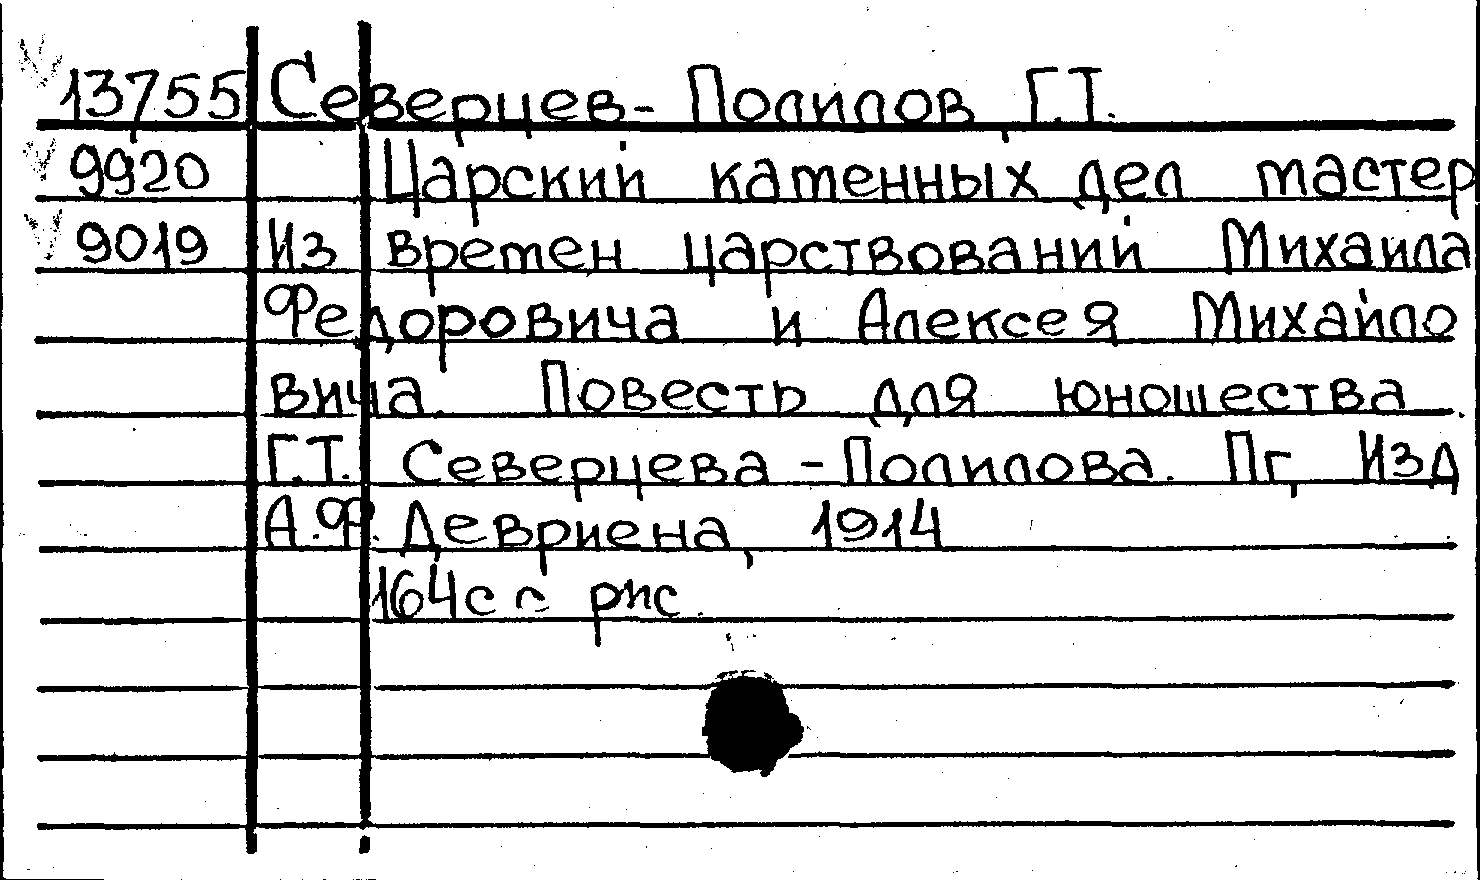 13755 Северцев-Полилов, Г.Т.
9920 Царский каменных дел мастер
9019 Из времен царствований Михаила
Федоровича и Алексея Михайло
вича Повесть для юношества.
Г.Т. Северцева-Полилова. Пг, Изд
А.Ф. Девриена, 1914
164с с рис.